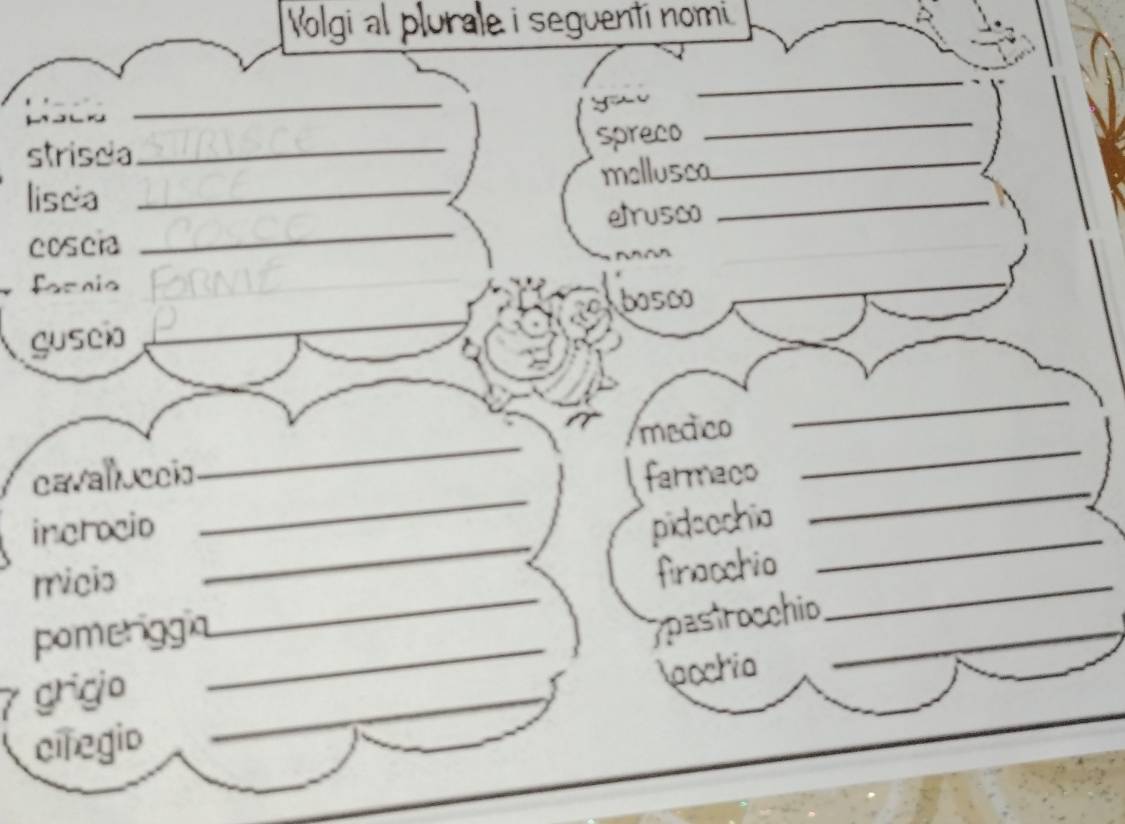 Volgi al plurale i seguenti nomi.
striscia STRISCE
liscia LISCE
coscia COSCE
FORNIE
guscio P
spreco
mollusco
etrusco
bosco
cavalluccio
incrocio
micio
pomeriggio
grigio
ciliegio
medico
farmaco
pidocchio
finocchio
pastrocchio
occhio